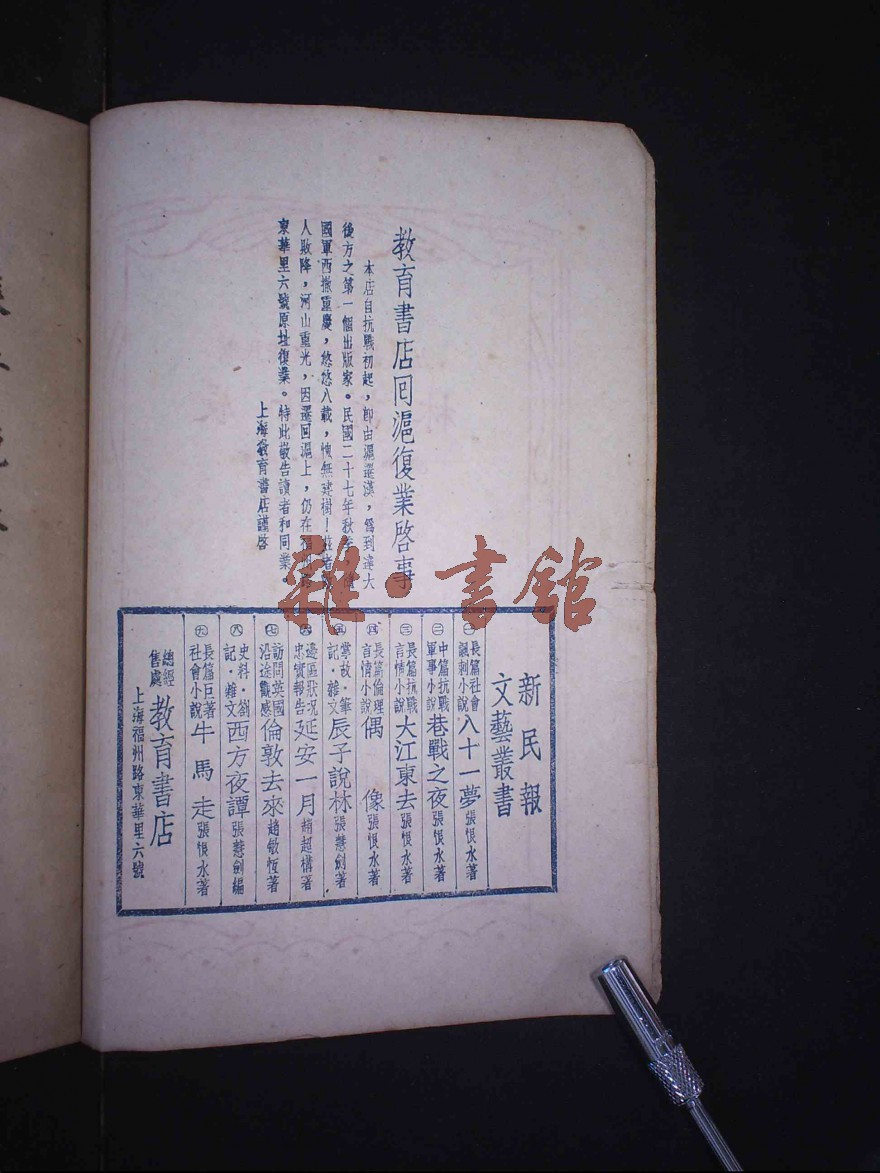 教育書店回滬復業啓事
本店自抗戰初起，卽由滬遷漢，爲到達大
後方之第一個出版家。民國二十七年秋
國軍西撤重慶，悠悠八載，愧無建樹！茲者
人敗降，河山重光，因遷回滬上，仍在福州
東華里六號原址復業。特此敬告讀者和同業。
上海敎育書店謹啓
雜·書館
新民報
文藝叢書
㊀長篇社會諷刺小說 八十一夢 張恨水著
㊁中篇抗戰軍事小說 巷戰之夜 張恨水著
㊂長篇抗戰言情小說 大江東去 張恨水著
㊃長篇倫理言情小說 偶像 張恨水著
㊄掌故·筆記·雜文 辰子說林 張慧劍著
㊅邊區狀況忠實報告 延安一月 趙超構著
㊆訪問英國沿途觀感 倫敦去來 趙敏恆著
㊇史料·劄記·雜文 西方夜譚 張慧劍編
㊈長篇巨著社會小說 牛馬走 張恨水著
總經售處 教育書店
上海福州路東華里六號